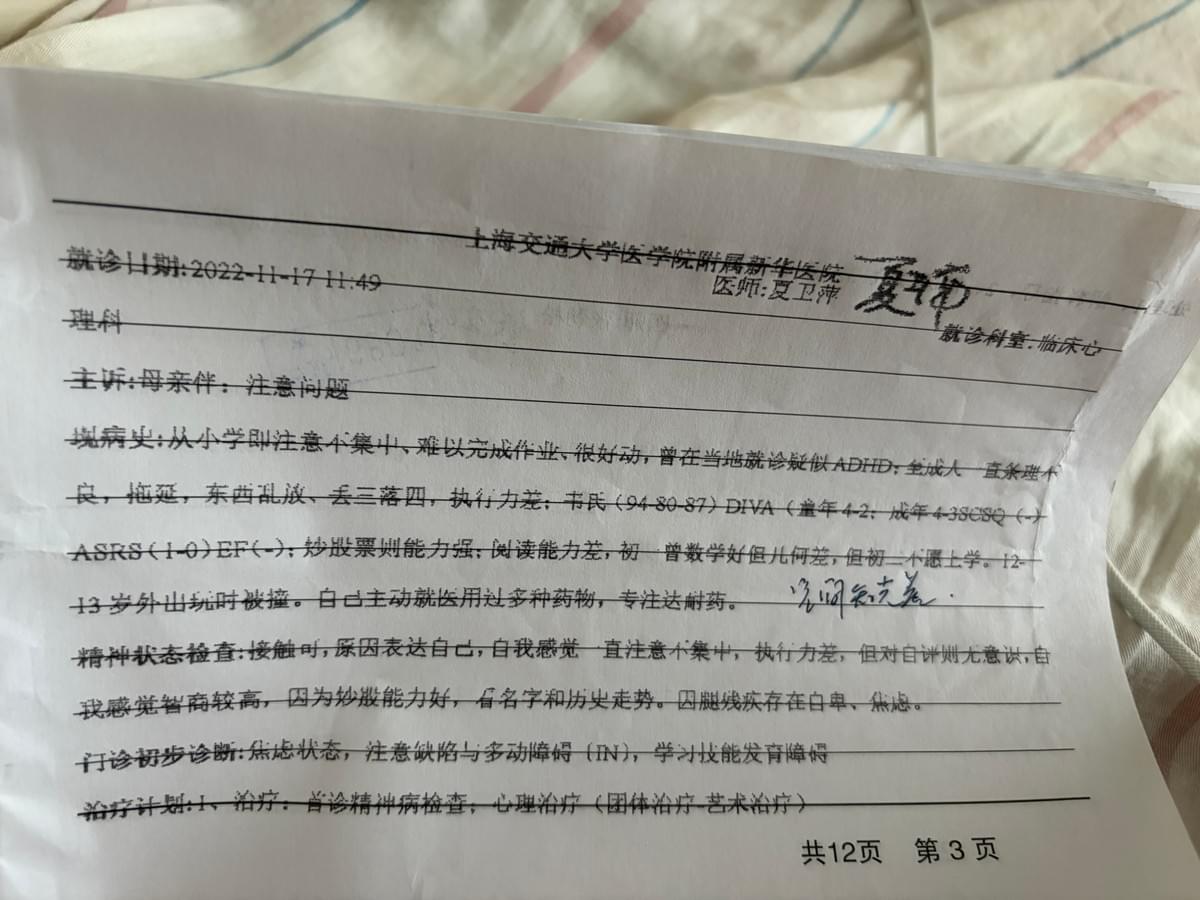 上海交通大学医学院附属新华医院
就诊日期:2022-11-17 11:49 医师:夏卫萍
就诊科室:临床心
理科
主诉:母亲伴：注意问题
现病史:从小学即注意不集中、难以完成作业、很好动，曾在当地就诊疑似ADHD；至成人一直条理不
良，拖延，东西乱放、丢三落四，执行力差；韦氏（94-80-87）DIVA（童年4-2；成年4-3SCSQ（-）
ASRS（1-0）EF(-)；炒股票则能力强；阅读能力差，初一曾数学好但几何差，但初二不愿上学。12-
13岁外出玩时被撞。自己主动就医用过多种药物，专注达耐药。
精神状态检查:接触可，原因表达自己，自我感觉一直注意不集中，执行力差，但对自评则无意识，自
我感觉智商较高，因为炒股能力好，看名字和历史走势。因腿残疾存在自卑、焦虑。
门诊初步诊断:焦虑状态，注意缺陷与多动障碍（IN），学习技能发育障碍
治疗计划:1、治疗：首诊精神病检查；心理治疗（团体治疗-艺术治疗）
共12页 第 3 页